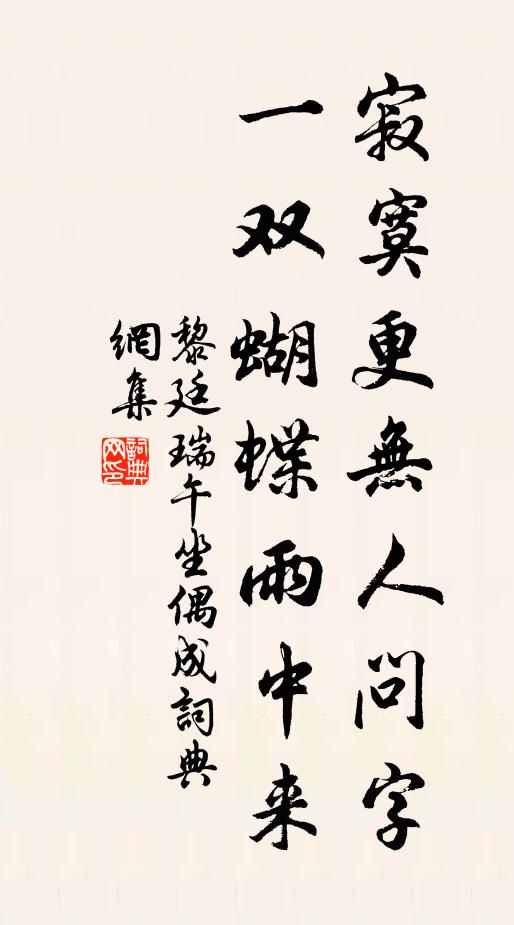 寂寞更無人問字
一双蝴蝶雨中来
黎廷瑞午坐偶成詞典
網集
詞典網印